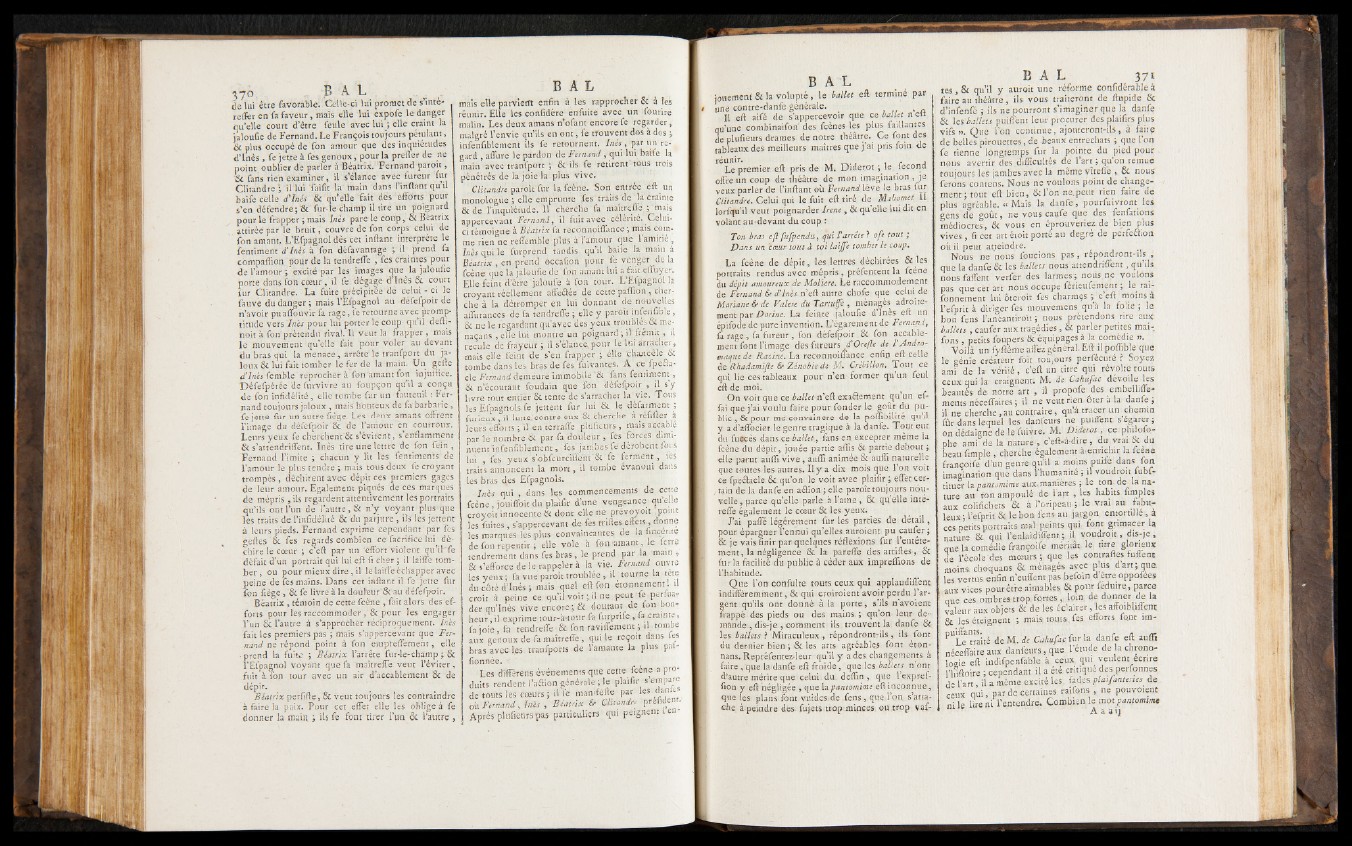 370 BAL
de lui être favorable. Celle-ci lui promet de s'inté-
resser en sa faveur, mais elle lui expose le danger
qu'elle court d'être seule avec lui ; elle craint la
jalousie de Fernand. Le François toujours pétulant,
& plus occupé de son amour que des inquiétudes
d'Inès, se jette à ses genoux, pour la presser de ne
point oublier de parler à Béatrix. Fernand paroît,
& sans rien examiner, il s'élance avec fureur sur
Clitandre ; il lui saisit la main dans l'instant qu'il
baise celle d'Inès & qu'elle fait des efforts pour
s'en défendre ; & sur-le champ il tire un poignard
pour le frapper ; mais Inès pare le coup, & Béatrix
attirée par le bruit, couvre de son corps celui de
son amant. L'Espagnol dès cet instant interprète le
sentiment d'Inès à son désavantage ; il prend sa
compassion pour de la tendresse, ses craintes pour
de l'amour ; excité par les images que la jalousie
porte dans son cœur, il se dégage d'Inès & court
sur Clitandre. La fuite précipitée de celui - ci le
sauve du danger ; mais l'Espagnol au désespoir de
n'avoir pu assouvir sa rage, se retourne avec promp-
titude vers Inès pour lui porter le coup qu'il desti-
noit à son prétendu rival. Il veut la frapper, mais
le mouvement qu'elle fait pour voler au devant
du bras qui la menace, arrête le transport du ja-
loux & lui fait tomber le fer de la main. Un geste
d'Inès semble reprocher à son amant son injustice.
Désespérée de survivre au soupçon qu'il a conçu
de son infidélité, elle tombe sur un fauteuil : Fer-
nand toujours jaloux, mais honteux de sa barbarie,
se jette sur un autre siège. Les deux amans offrent
l'image du désespoir & de l'amour en courroux.
Leurs yeux se cherchent & s'évitent, s'enflamment
& s'attendrissent. Inès tire une lettre de son sein,
Fernand l'imite ; chacun y lit les sentiments de
l'amour le plus tendre ; mais tous deux se croyant
trompés, déchirent avec dépit ces premiers gages
de leur amour. Egalement piqués de ces marques
de mépris, ils regardent attentivement les portraits
qu'ils ont l'un de l'autre, & n'y voyant plus que
les traits de l'infidélité & du parjure, ils les jettent
à leurs pieds. Fernand exprime cependant par ses
gestes & ses regards combien ce sacrifice lui dé-
chire le cœur ; c'est par un effort violent qu'il se
défait d'un portrait qui lui est si cher ; il laisse tom-
ber, ou pour mieux dire, il le laisse échapper avec
peine de ses mains. Dans cet instant il se jette sur
son siège, & se livre à la douleur & au désespoir.
Béatrix, témoin de cette scène, fait alors des ef-
forts pour les raccommoder, & pour les engager
l'un & l'autre à s'approcher réciproquement. Inès
fait les premiers pas ; mais s'appercevant que Fer-
nand ne répond point à son empressement, elle
prend la fuite ; Béatrix l'arrête sur-le-champ ; &
l'Espagnol voyant que sa maîtresse veut l'éviter,
fuit à son tour avec un air d'accablement & de
dépit.
Béatrix persiste, & veut toujours les contraindre
à faire la paix. Pour cet effet elle les oblige à se
donner la main ; ils se font tirer l'un & l'autre,
BAL
mais elle parvient enfin à les rapprocher & à les
réunir. Elle les considère ensuite avec un sourire
malin. Les deux amans n'osant encore se regarder,
malgré l'envie qu'ils en ont, se trouvent dos à dos ;
insensiblement ils se retournent. Inès, par un re-
gard, assure le pardon de Fernand, qui lui baise la
main avec transport ; & ils se retirent tous trois
pénétrés de la joie la plus vive.
Clitandre paroît sur la scène. Son entrée est un
monologue ; elle emprunte ses traits de la crainte
& de l'inquiétude. Il cherche sa maîtresse ; mais
appercevant Fernand, il fuit avec célérité. Celui-
ci témoigne à Béatrix sa reconnoissance ; mais com-
me rien ne ressemble plus à l'amour que l'amitié,
Inès qui le surprend tandis qu'il baise la main à
Béatrix, en prend occasion pour se venger de la
scène que la jalousie de son amant lui a fait essuyer.
Elle feint d'être jalouse à son tour. L'Espagnol la
croyant réellement affectée de cette passion, cher-
che à la détromper en lui donnant de nouvelles
assurances de sa tendresse ; elle y paroît insensible,
& ne le regardant qu'avec des yeux troublés & me-
naçans, elle lui montre un poignard ; il frémit, il
recule de frayeur ; il s'élance pour le lui arracher,
mais elle feint de s'en frapper ; elle chancèle &
tombe dans les bras de ses suivantes. A ce specta-
cle Fernand demeure immobile & sans sentiment,
& n'écoutant soudain que son désespoir, il s'y
livre tout entier & tente de s'arracher la vie. Tous
les Espagnols se jettent sur lui & le désarment ;
furieux, il lutte contre eux & cherche à résister à
leurs efforts ; il en terrasse plusieurs, mais accablé
par le nombre & par sa douleur, ses forces dimi-
nuent insensiblement, ses jambes se dérobent sous
lui, ses yeux s'obscurcissent & se ferment, ses
traits annoncent la mort, il tombe évanoui dans
les bras des Espagnols.
Inès qui, dans les commencements de cette
scène, jouissoit du plaisir d'une vengeance qu'elle
croyoit innocente & dont elle ne prévoyoit point
les suites, s'appercevant de ses tristes effets, donne
les marques les plus convaincantes de la sincérité
de son repentir ; elle vole à son amant, le serre
tendrement dans ses bras, le prend par la main,
& s'efforce de le rappeler à la vie. Fernand ouvre
les yeux ; sa vue paroît troublée, il tourne la tête
du côté d'Inès ; mais quel est son étonnement ! il
croit à peine ce qu'il voit ; il ne peut se persua-
der qu'Inès vive encore ; & doutant de son bon-
heur, il exprime tour-à-tour sa surprise, sa crainte,
sa joie, sa tendresse & son ravissement ; il tombe
aux genoux de sa maîtresse, qui le reçoit dans ses
bras avec les transports de l'amante la plus pas-
sionnée.
Les différens événemens que cette scène a pro-
duits rendent l'action générale ; le plaisir s'empare
de tous les cœurs ; il se manifeste par les danses
où Fernand, Inès, Béatrix & Clitandre président.
Après plusieurs pas particuliers qui peignent l'en-
BAL
jouement & la volupté, le ballet est terminé par
une contre-danse générale.
Il est aisé de s'appercevoir que ce ballet n'est
qu'une combinaison des scènes les plus saillantes
de plusieurs drames de notre théâtre. Ce sont des
tableaux des meilleurs maîtres que j'ai pris soin de
réunir.
Le premier est pris de M. Diderot ; le second
offre un coup de théâtre de mon imagination, je
veux parler de l'instant où Fernand lève le bras sur
Clitandre. Celui qui le suit est tiré de Mahomet II
lorsqu'il veut poignarder Irene, & qu'elle lui dit en
volant au-devant du coup :
Ton bras est suspendu, qui l'arrête ? ose tout ;
Dans un cœur tout à toi laisse tomber le coup.
La scène de dépit, les lettres déchirées & les
portraits rendus avec mépris, présentent la scène
du dépit amoureux de Moliere. Le raccommodement
de Fernand & d'Inès n'est autre chose que celui de
Mariane & de Valere du Tartuffe, ménagés adroite-
ment par Dorine. La feinte jalousie d'Inès est un
épisode de pure invention. L'égarement de Fernand,
sa rage, sa fureur, son désespoir & son accable-
ment sont l'image des fureurs d'Oreste de l'Andro-
maque de Racine. La reconnoissance enfin est celle
de Rhadamiste & Zénobie de M. Crébillon. Tout ce
qui lie ces tableaux pour n'en former qu'un seul
est de moi.
On voit que ce ballet n'est exactement qu'un es-
sai que j'ai voulu faire pour sonder le goût du pu-
blic, & pour me convaincre de la possibilité qu'il
y a d'associer le genre tragique à la danse. Tout eut
du succès dans ce ballet, sans en excepter même la
scène du dépit, jouée partie assis & partie debout ;
elle parut aussi vive, aussi animée & aussi naturelle
que toutes les autres. Il y a dix mois que l'on voit
ce spectacle & qu'on le voit avec plaisir ; effet cer-
tain de la danse en action ; elle paroît toujours nou-
velle, parce qu'elle parle à l'ame, & qu'elle inté-
resse également le cœur & les yeux.
J'ai passé légèrement sur les parties de détail,
pour épargner l'ennui qu'elles auroient pu causer ;
& je vais finir par quelques réflexions sur l'entête-
ment, la négligence & la paresse des artistes, &
sur la facilité du public à céder aux impressions de
l'habitude.
Que l'on consulte tous ceux qui applaudissent
indifféremment, & qui croiroient avoir perdu l'ar-
gent qu'ils ont donné à la porte, s'ils n'avoient
frappé des pieds ou des mains ; qu'on leur de-
mande, dis-je, comment ils trouvent la danse &
les ballets ? Miraculeux, répondront-ils, ils sont
du dernier bien ; & les arts agréables sont éton-
nans. Représentez-leur qu'il y a des changements à
faire, que la danse est froide, que les ballets n'ont
d'autre mérite que celui du dessin, que l'expres-
sion y est négligée, que la pantomime est inconnue,
que les plans sont vuides de sens, que l'on s'atta-
che à peindre des sujets trop minces ou trop vas-
BAL 371
tes, & qu'il y auroit une réforme considérable à
faire au théâtre, ils vous traiteront de stupide &
d'insensé ; ils ne pourront s'imaginer que la danse
& les ballets puissent leur procurer des plaisirs plus
vifs ». Que l'on continue, ajouteront-ils, à faire
de belles pirouettes, de beaux entrechats ; que l'on
se tienne longtemps sur la pointe du pied pour
nous avertir des difficultés de l'art ; qu'on remue
toujours les jambes avec la même vîtesse, & nous
serons contens. Nous ne voulons point de change-
ment ; tout est bien, & l'on ne peut rien faire de
plus agréable. « Mais la danse, poursuivront les
gens de goût, ne vous cause que des sensations
médiocres, & vous en éprouveriez de bien plus
vives, si cet art étoit porté au degré de perfection
où il peut atteindre.
Nous ne nous soucions pas, répondront-ils,
que la danse & les ballets nous attendrissent, qu'ils
nous fassent verser des larmes ; nous ne voulons
pas que cet art nous occupe sérieusement ; le rai-
sonnement lui ôteroit ses charmes ; c'est moins à
l'esprit à diriger ses mouvemens qu'à la folie ; le
bon sens l'anéantiroit ; nous prétendons rire aux
ballets, causer aux tragédies, & parler petites mai-
sons, petits soupers & équipages à la comédie ».
Voilà un système assez général. Est-il possible que
le génie créateur soit toujours persécuté ? Soyez
ami de la vérité, c'est un titre qui révolte tous
ceux qui la craignent. M. de Cahusac dévoile les
beautés de notre art, il propose des embellisse-
ments nécessaires ; il ne veut rien ôter à la danse ;
il ne cherche, au contraire, qu'à tracer un chemin
sûr dans lequel les danseurs ne puissent s'égarer ;
on dédaigne de le suivre. M. Diderot, ce philoso-
phe ami de la nature, c'est-à-dire, du vrai & du
beau simple, cherche également à enrichir la scène
françoise d'un genre qu'il a moins puisé dans son
imagination que dans l'humanité ; il voudroit subs-
tituer la pantomime aux manières ; le ton de la na-
ture au ton ampoulé de l'art, les habits simples
aux colifichets & à l'oripeau ; le vrai au fabu-
leux ; l'esprit & le bon sens au jargon entortillé, à
ces petits portraits mal peints qui font grimacer la
nature & qui l'enlaidissent ; il voudroit, dis-je,
que la comédie françoise méritât le titre glorieux
de l'école des mœurs ; que les contrastes fussent
moins choquans & ménagés avec plus d'art ; que
les vertus enfin n'eussent pas besoin d'être opposées
aux vices pour être aimables & pour séduire, parce
que ces ombres trop fortes, loin de donner de la
valeur aux objets & de les éclairer, les affoiblissent
& les éteignent ; mais tous ses efforts sont im-
puissans.
Le traité de M. de Cahusac sur la danse est aussi
nécessaire aux danseurs, que l'étude de la chrono-
logie est indispensable à ceux qui veulent écrire
l'histoire ; cependant il a été critiqué des personnes
de l'art, il a même excité les fades plaisanteries de
ceux qui, par de certaines raisons, ne pouvoient
ni le lire ni l'entendre. Combien le mot pantomime
A a a ij